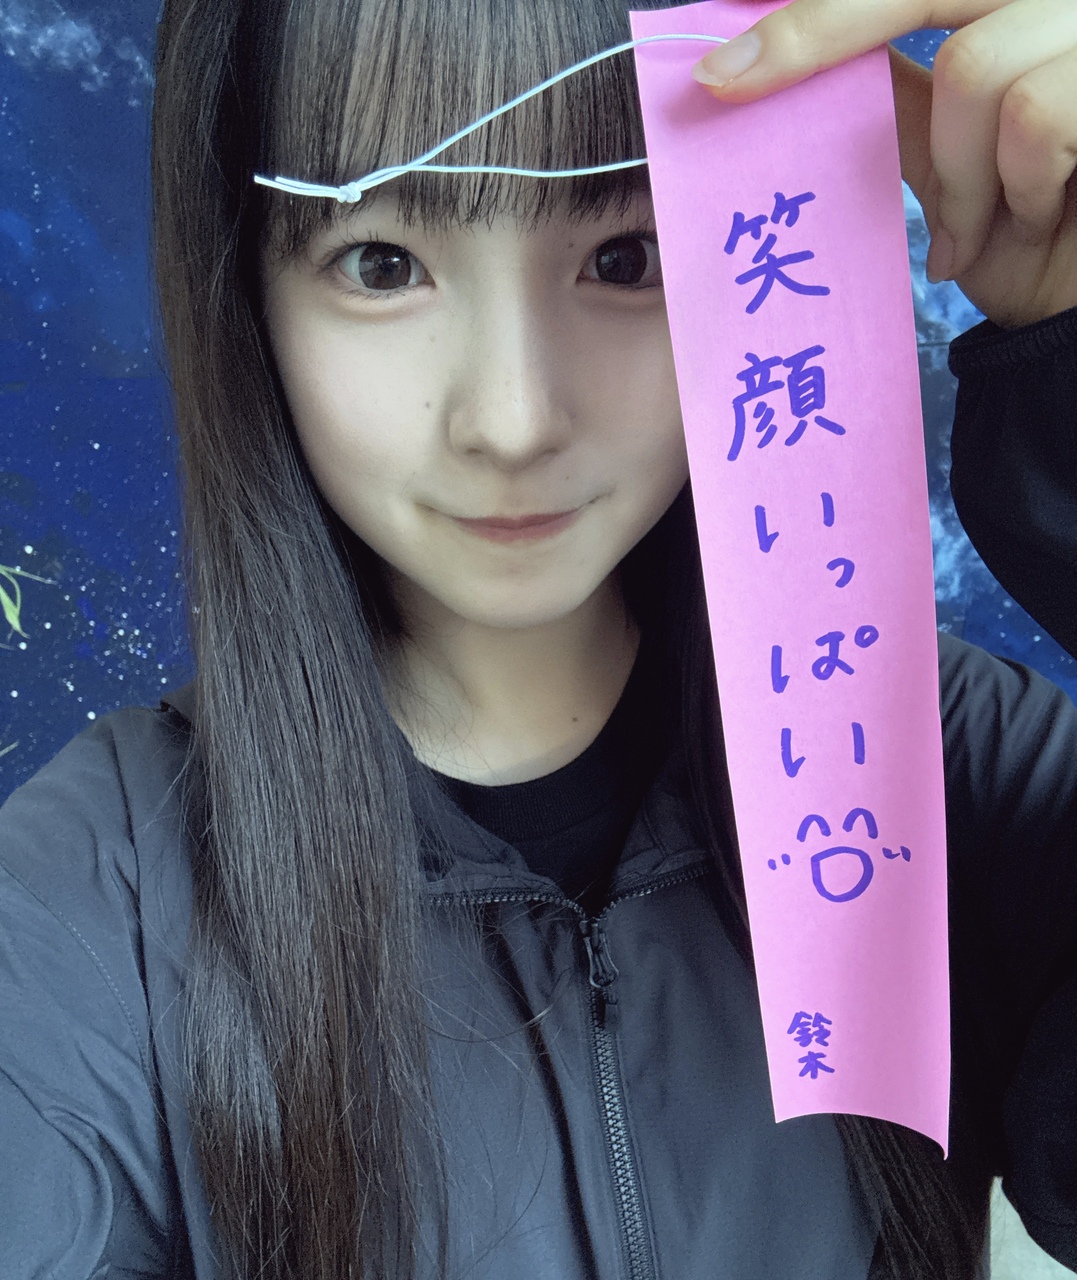 笑顔いっぱい
鈴木